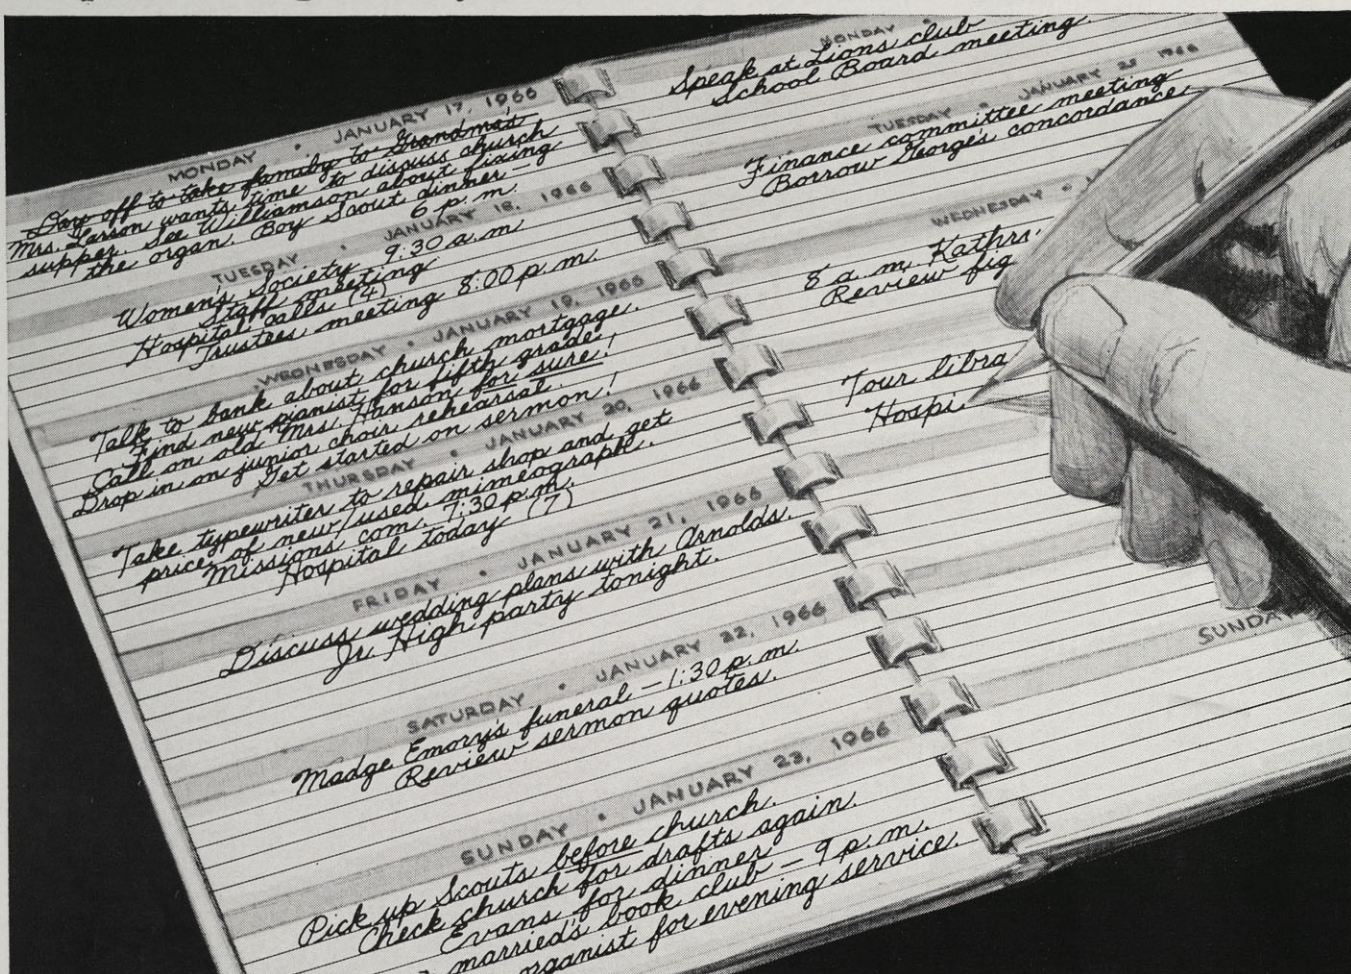 MONDAY • JANUARY 17, 1966
Day off to take family to Grandma's
Mrs. Larson wants time to discuss church
supper. See Williamson about fixing
the organ. Boy Scout dinner —
6 p.m.
TUESDAY • JANUARY 18, 1966
Women's Society 9:30 a.m.
Staff meeting
Hospital calls (4)
Trustees meeting 8:00 p.m.
WEDNESDAY • JANUARY 19, 1966
Talk to bank about church mortgage.
Find new pianist for fifth grade.
Call on old Mrs. Hanson for sure!
Drop in on junior choir rehearsal.
Get started on sermon!
THURSDAY • JANUARY 20, 1966
Take typewriter to repair shop and get
prices of new/used mimeograph.
Missions com. 7:30 p.m.
Hospital today (7)
FRIDAY • JANUARY 21, 1966
Discuss wedding plans with Arnolds.
Jr. High party tonight.
SATURDAY • JANUARY 22, 1966
Madge Emory's funeral — 1:30 p.m.
Review sermon quotes.
SUNDAY • JANUARY 23, 1966
Pick up Scouts before church.
Check church for drafts again.
Evans for dinner
married's book club — 9 p.m.
organist for evening service.
MONDAY •
Speak at Lions club
School Board meeting.
TUESDAY • JANUARY 25 1966
Finance committee meeting
Borrow George's concordance
WEDNESDAY •
8 a.m. Kathr
Review fig
Tour libra
Hospi
SUNDAY